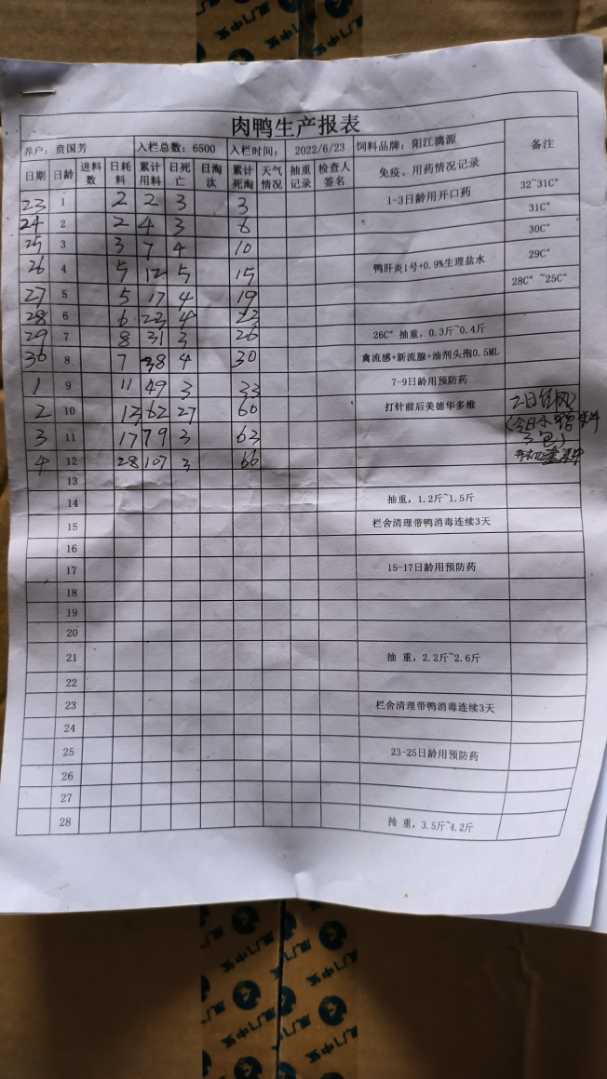 肉鸭生产报表
养户：贲国芳 入栏总数：6500 入栏时间： 2022/6/23 饲料品牌：阳江漓源 备注
日期 日龄 进料数 日耗料 累计用料 日死亡 日淘汰 累计死淘 天气情况 抽重记录 检查人签名 免疫、用药情况记录
23 1 2 2 3 3 1-3日龄用开口药 32~31C°
24 2 2 4 3 6 31C°
25 3 3 7 4 10 30C°
26 4 5 12 5 15 鸭肝炎1号+0.9%生理盐水 29C°
27 5 5 17 4 19 28C° ~25C°
28 6 6 23 4 22
29 7 8 31 3 26 26C° 抽重，0.3斤~0.4斤
30 8 7 38 4 30 禽流感+新流腺+油剂头孢0.5ML
1 9 11 49 3 33 7-9日龄用预防药
2 10 13 62 27 60 打针前后美德华多维 2日台风
3 11 17 79 3 63 3包)
4 12 28 107 3 66
13
14 抽重，1.2斤~1.5斤
15 栏舍清理带鸭消毒连续3天
16
17 15-17日龄用预防药
18
19
20
21 抽 重，2.2斤~2.6斤
22
23 栏舍清理带鸭消毒连续3天
24
25 23-25日龄用预防药
26
27
28 抽 重，3.5斤~4.2斤